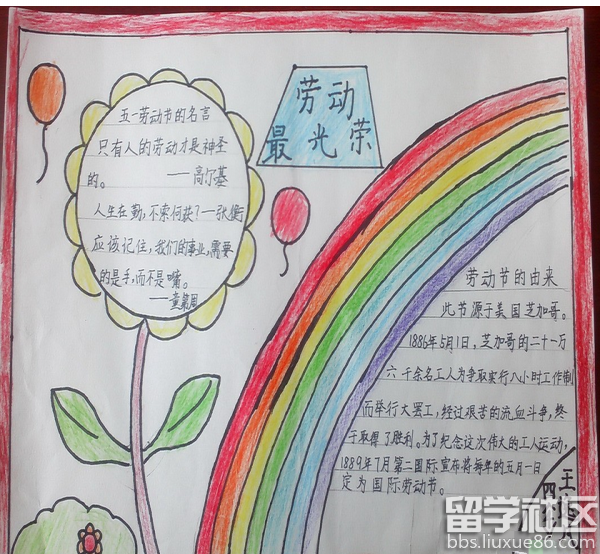 五一劳动节的名言
只有人的劳动才是神圣
的。 ——高尔基
人生在勤,不索何获?—张衡
应该记住,我们的事业,需要
的是手,而不是嘴。
——童第周
劳动
最光荣
劳动节的由来
此节源于美国芝加哥。
1886年5月1日,芝加哥的二十一万
六千余名工人为争取实行八小时工作制
而举行大罢工,经过艰苦的流血斗争,终
于取得了胜利。为了纪念这次伟大的工人运动,
1889年7月第二国际宣布将每年的五月一日
定为国际劳动节。
四
王
留学社区
bbs.liuxue86.com